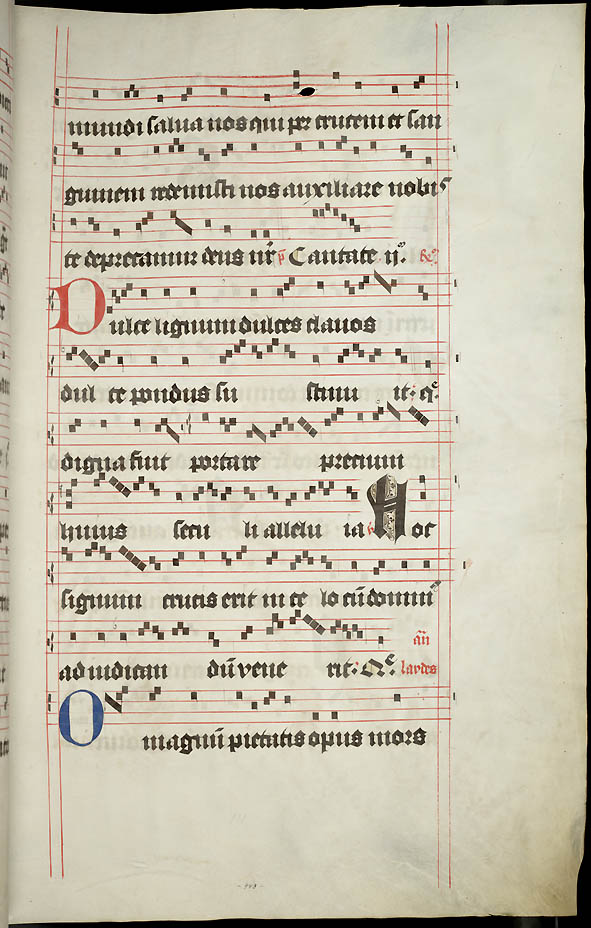 mundi salua nos qui per crucem et san
guinem redemisti nos auxiliare nobis
te deprecamur deus nr̄ p̄ Cantate ij.
Dulce lignum dulces clauos
dul ce pondus su stinu it: q̄
digna fuit portare precium
huius secu li allelu ia v Hoc
signum crucis erit in ce lo cū domin⁹
ad iudican dū vene rit: an̄
laudes
O magnū pietatis opus mors